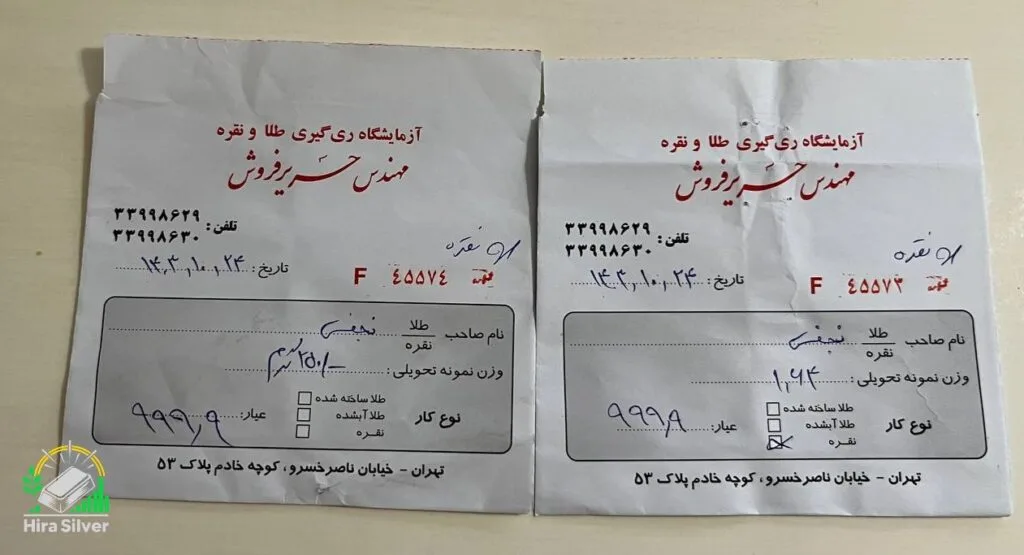 آزمایشگاه ری گیری طلا و نقره
مهندس حریرفروش
تلفن: ۳۳۹۹۸۶۲۹
۳۳۹۹۸۶۳۰
نقره
تاریخ: ۱۴۰۳,۱۰,۲۴
F ۴۵۵۷۴
نام صاحب طلا / نقره نجفی
وزن نمونه تحویلی: ۲۵۰/-
نوع کار
طلا ساخته شده
طلا آبشده
نقره
عیار: ۹۹۹,۹
تهران - خیابان ناصرخسرو، کوچه خادم پلاک ۵۳
آزمایشگاه ری گیری طلا و نقره
مهندس حریرفروش
تلفن: ۳۳۹۹۸۶۲۹
۳۳۹۹۸۶۳۰
نقره
تاریخ: ۱۴۰۳,۱۰,۲۴
F ۴۵۵۷۳
نام صاحب طلا / نقره نجفی
وزن نمونه تحویلی: ۱,۶۴
نوع کار
طلا ساخته شده
طلا آبشده
نقره
عیار: ۹۹۹,۹
تهران - خیابان ناصرخسرو، کوچه خادم پلاک ۵۳
Hira Silver